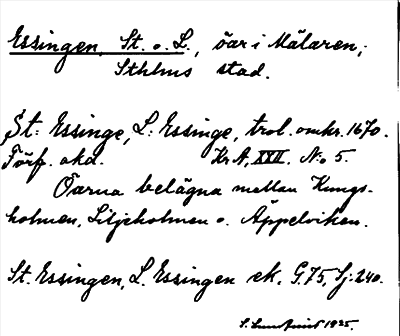 Essingen, St. o. L., öar i Mälaren,
Sthlms stad.
St: Essinge, L: Essinge, trol. omkr. 1670.
Förf. okd. Kr A, XXII. N:o 5.
Öarna belägna mellan Kungs-
holmen, Liljeholmen o. Äppelviken.
St. Essingen, L. Essingen ek. G.75, Sj:240.
1925.